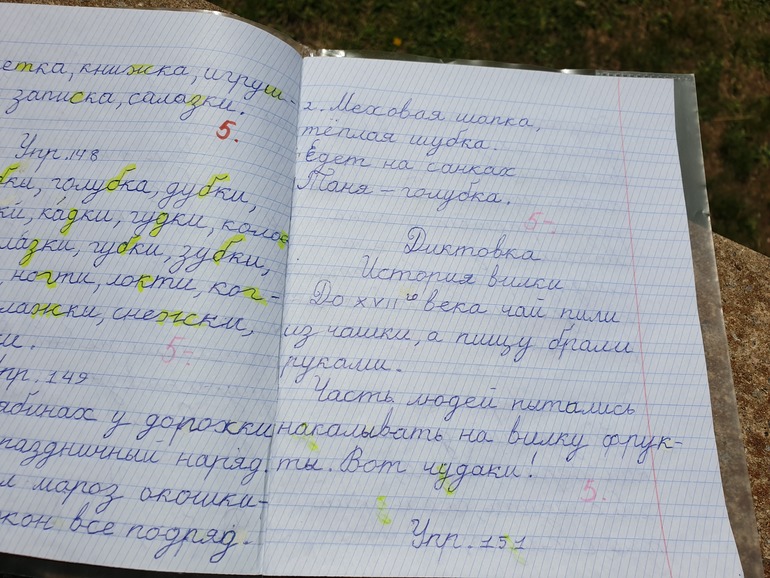 етка, книжка, игруш-
записка, салазки.
5.
Упр. 148
бки, голубка, дубки,
ки, кадки, гудки, колос
лазки, губки, зубки,
, ногти, локти, ког-
лажки, снежки,
и.
5-
пр. 149
ябинах у дорожки
паздничный наряд.
л мароз окошки-
кон все подряд.
2. Меховая шапка,
тёплая шубка.
Едет на санках
Таня - голубка.
5-
Диктовка
История вилки
До XVII го века чай пили
из чашки, а пищу брали
руками.
Часть людей пытались
накалывать на вилку фрук-
ты. Вот чудаки!
5.
Упр. 151